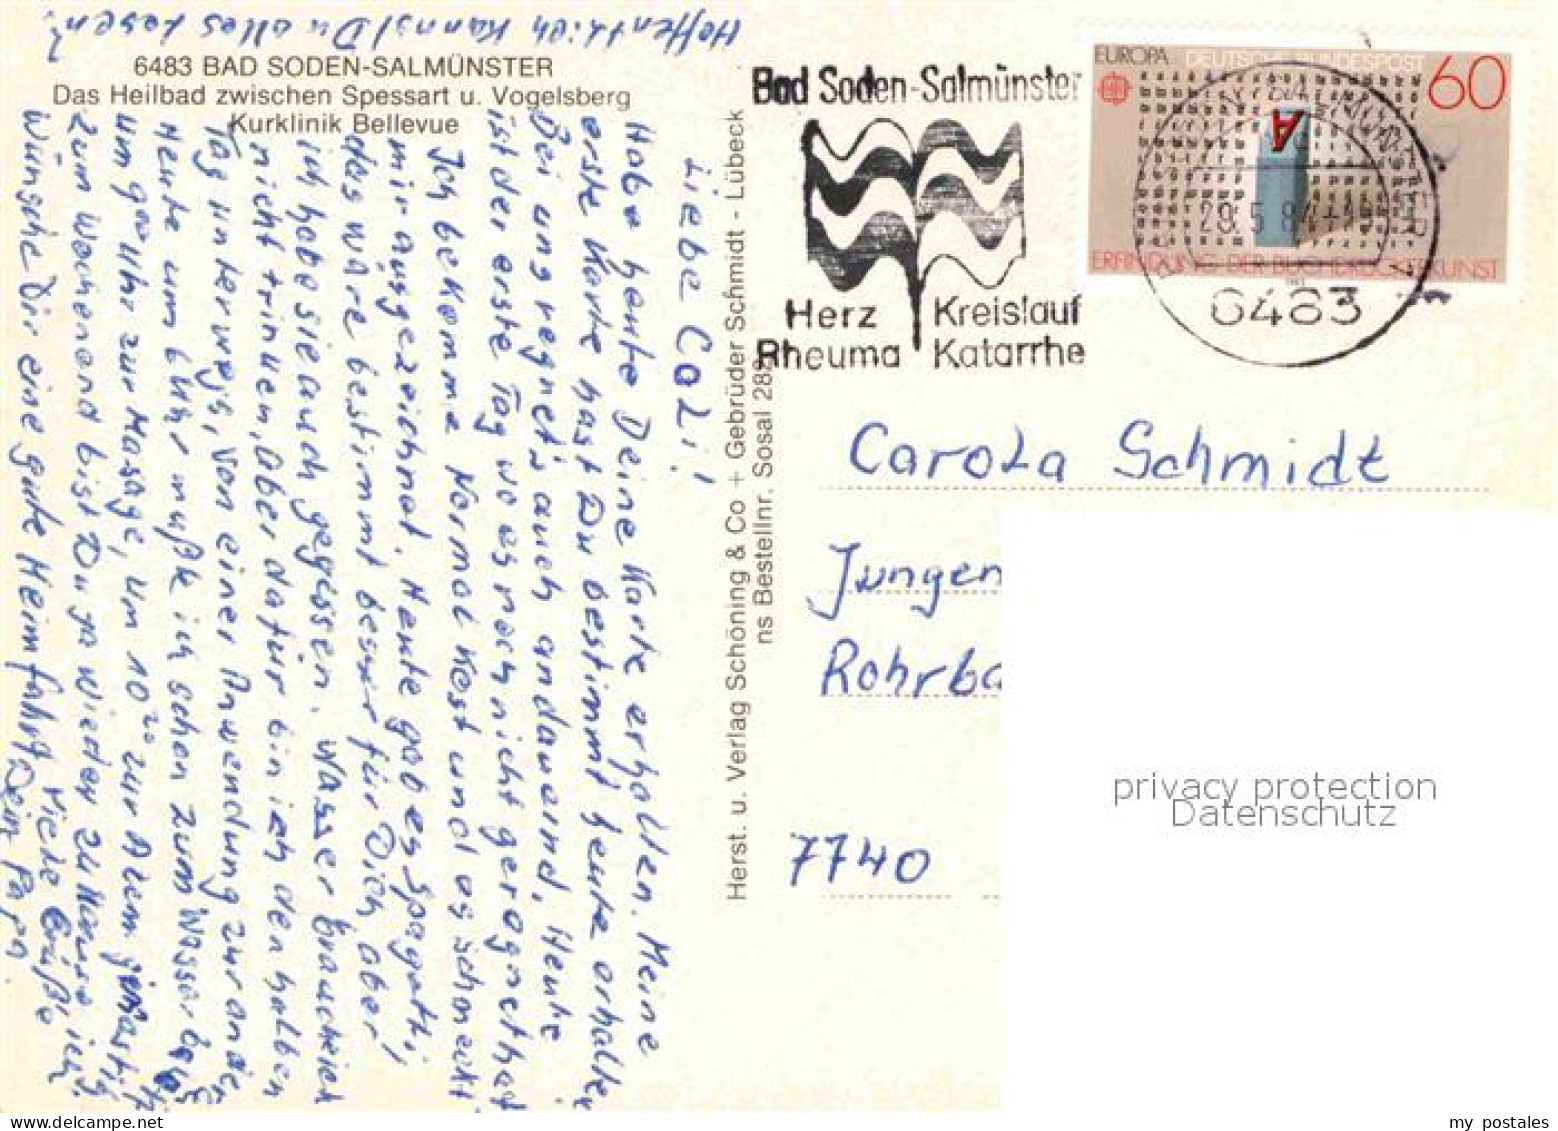 Hoffentlich kannst Du alles lesen?
6483 BAD SODEN-SALMÜNSTER
Das Heilbad zwischen Spessart u. Vogelsberg
Kurklinik Bellevue
Liebe Coli!
Habe heute Deine Karte erhalten. Meine
erste Karte hast Du bestimmt heute erhalten
Bei uns regnet's auch andauernd, Heute
ist der erste Tag wo es noch nicht geregnet hat
Ich bekomme Normal Kost und es schmeckt
mir ausgezeichnet. Heute gab es Spagetti,
das wäre bestimmt besser für Dich, aber!
ich habe sie auch gegessen. Wasser brauche ich
nicht trinken, aber dafür bin ich den halben
Tag unterwegs, von einer Anwendung zur anderen
Heute um 6 Uhr mußte ich schon zum Wasser
um 900 Uhr zur Masage, um 10 20 zur Atem
Zum Wochenend bist Du ja wieder zu Hause, ich
Wünsche Dir eine gute Heimfahrt, Viele Grüße
Dein Papa.
Herst. u. Verlag Schöning & Co + Gebrüder Schmidt - Lübeck
ns Bestellnr. Sosal 28
Bad Soden-Salmünster
Herz Kreislauf
Rheuma Katarrhe
EUROPA DEUTSCHE BUNDESPOST 60
A
ERFINDUNG DER BUCHDRUCKERKUNST
29.5.84
6483
Carola Schmidt
Jungen
Rohrba
7740
privacy protection
Datenschutz
my postales